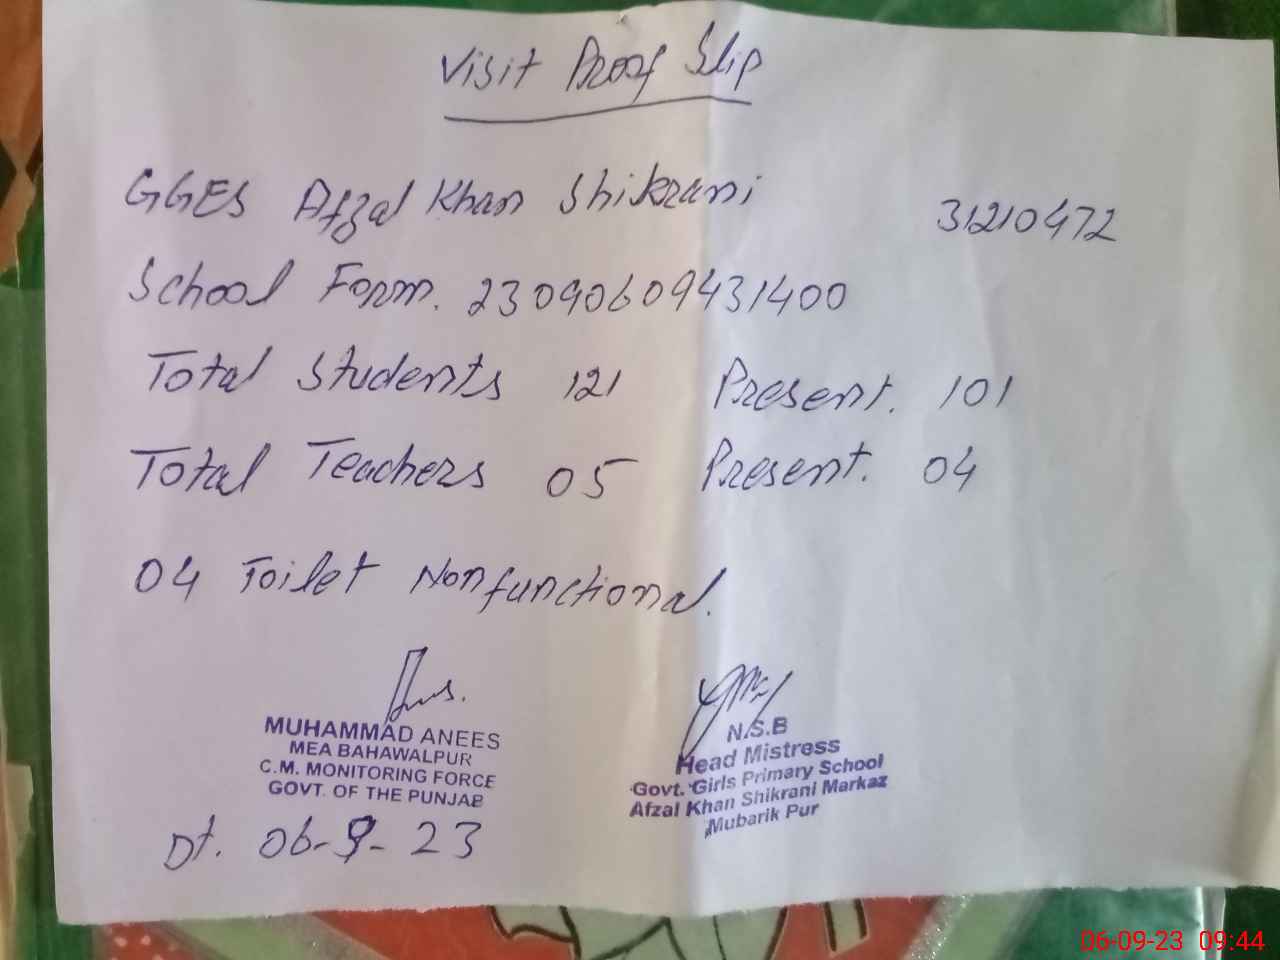 Visit Proof Slip
GGES Afzal Khan Shikrani 31210472
School Form. 23090609431400
Total Students 121 Present. 101
Total Teachers 05 Present. 04
04 Toilet Nonfunctional.
MUHAMMAD ANEES
MEA BAHAWALPUR
C.M. MONITORING FORCE
GOVT. OF THE PUNJAB
Dt. 06-9-23
N.S.B
Head Mistress
Govt. Girls Primary School
Afzal Khan Shikrani Markaz
Mubarik Pur
06-09-23 09:44